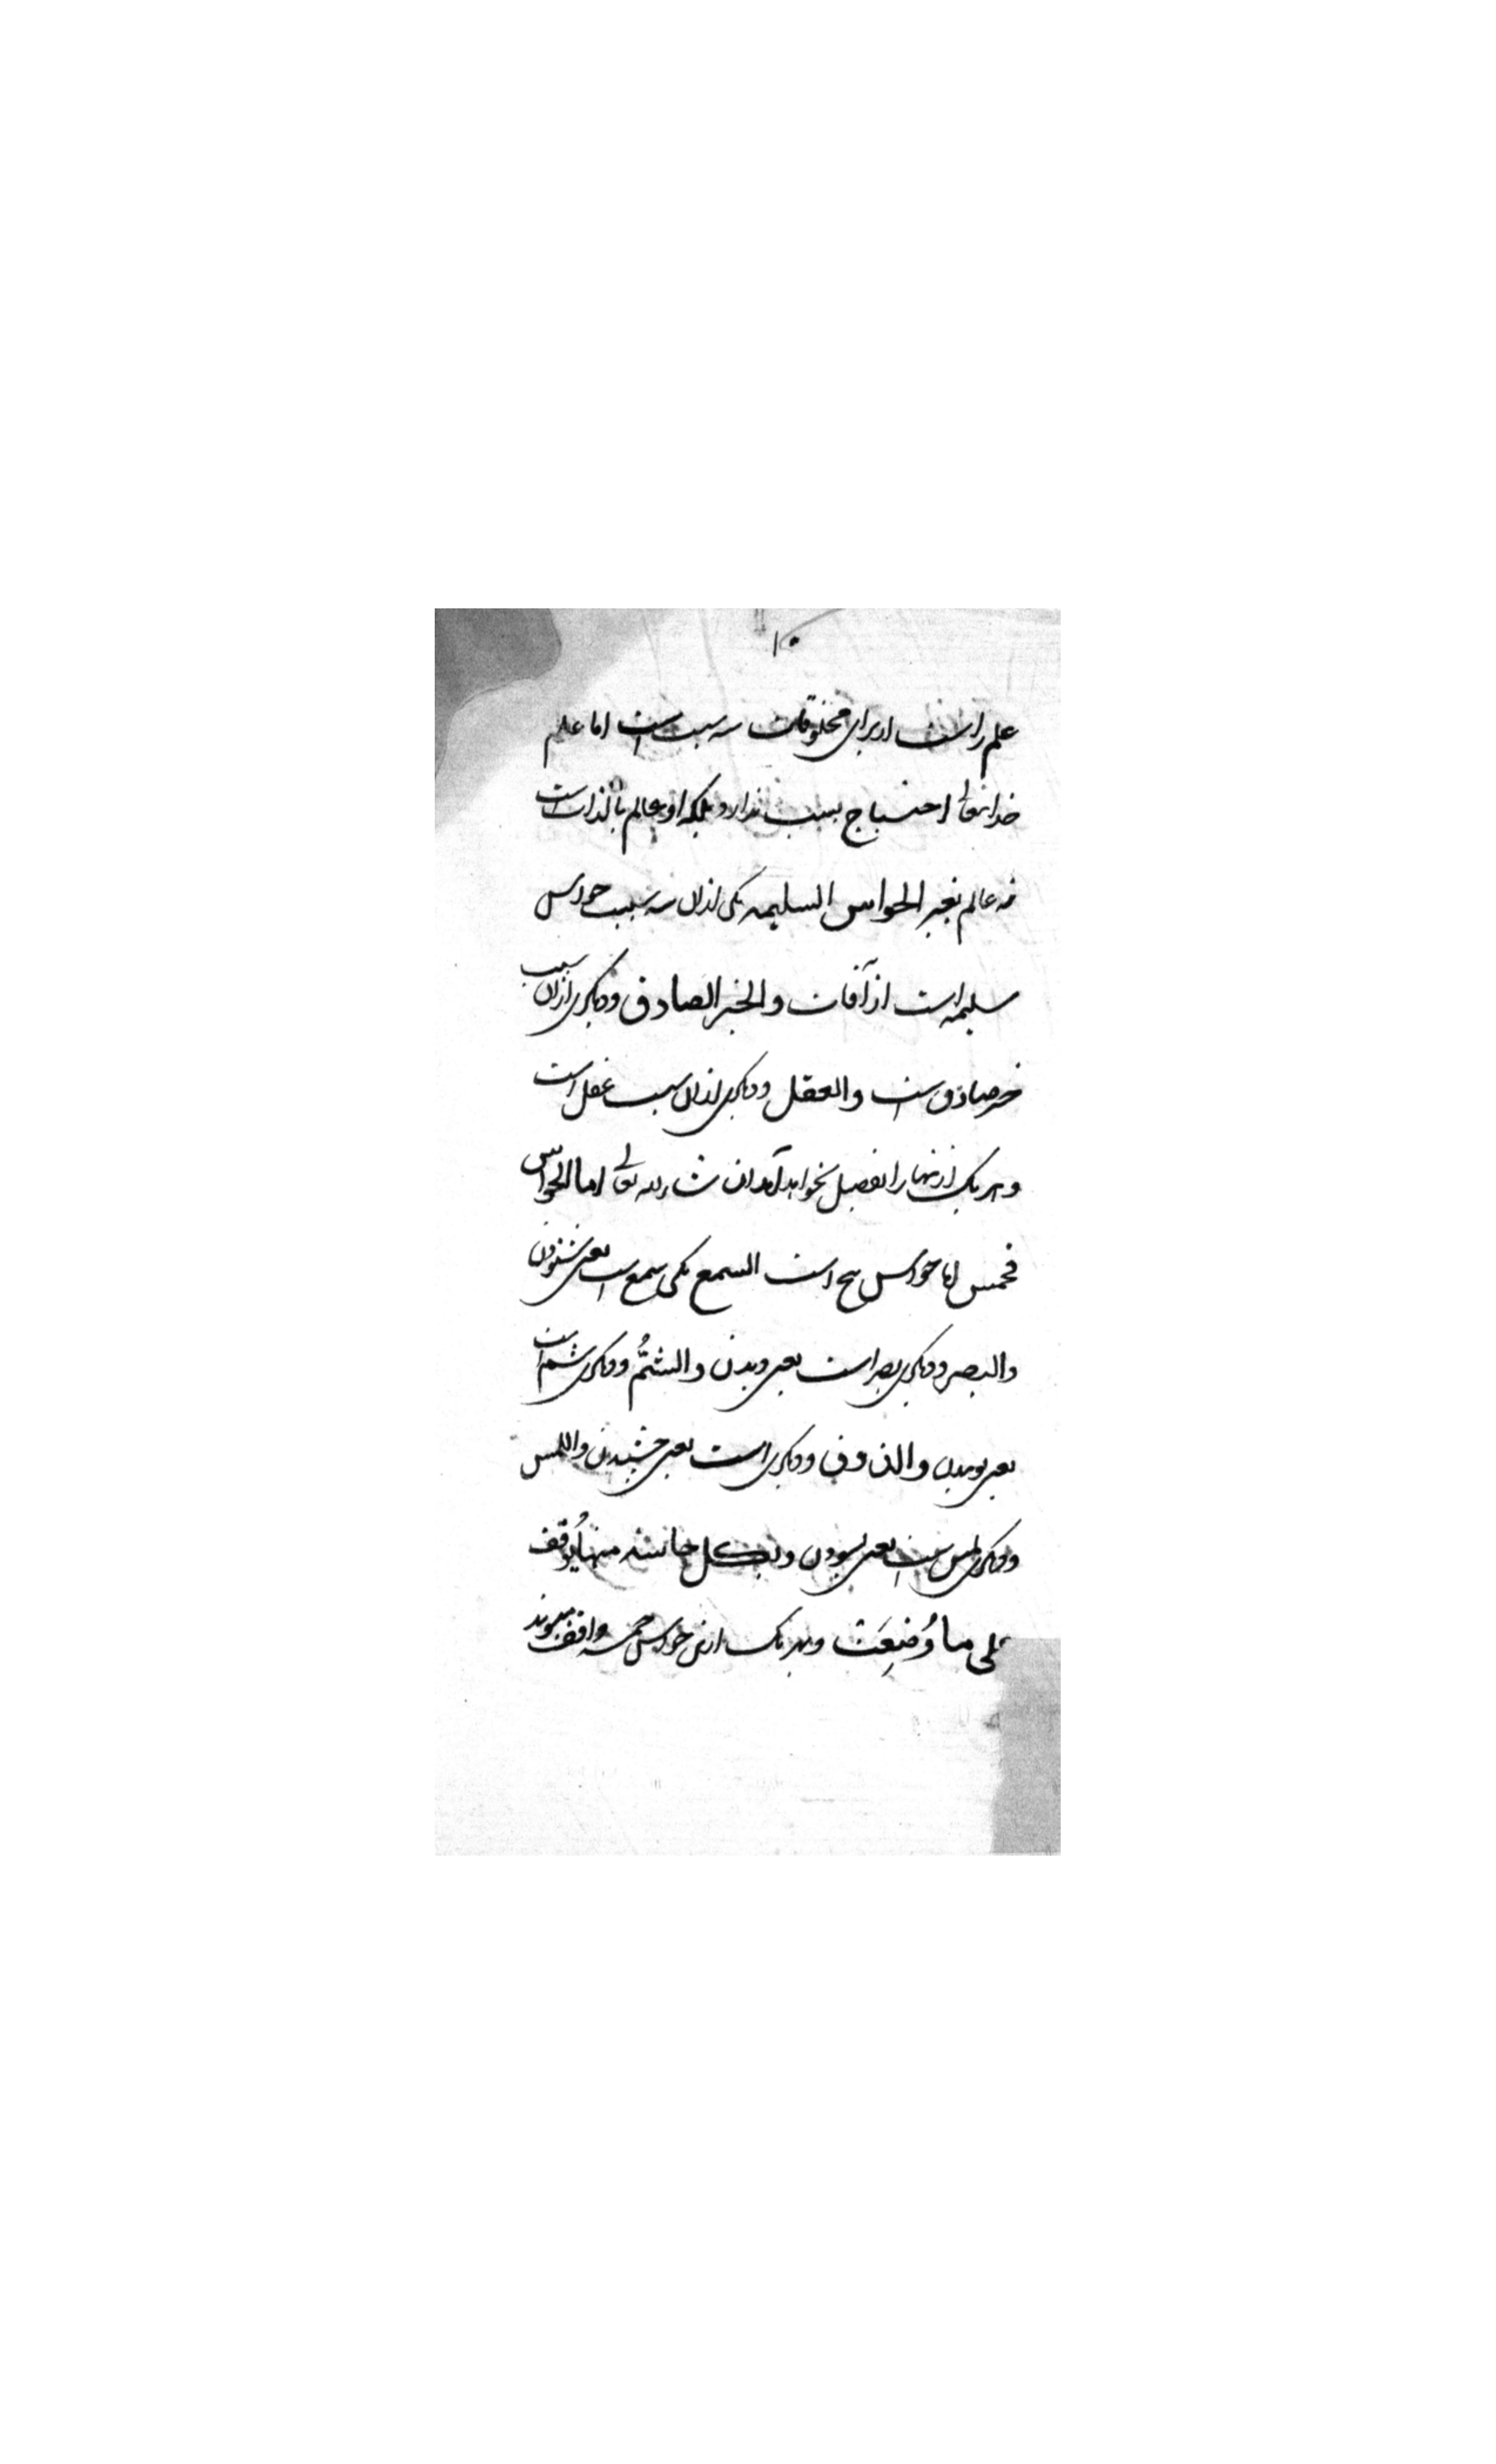 ۱۰
علم راست از برای مخلوقات سه سبب است اما علم
خدایتعالی احتیاج بسبب ندارد بلکه او عالم بالذات است
نه عالم بغیر الحواس السلیمه یکی ازان سه سبب حواس
سلیمه است از آفات والخبر الصادق و دیگری ازان سبب
خبر صادق است والعقل و دیگری ازان سبب عقل است
و هر یک ازینها را تفصیل بخواهد آمد ان شاء الله تعالی اما الحواس
فخمس اما حواس پنج است السمع یکی سمع است یعنی شنودن
والبصر و دیگری بصر است یعنی دیدن والشمُّ و دیگری شم است
یعنی بوییدن والذوق و دیگری است یعنی چشیدن واللمس
و دیگری لمس است یعنی بسودن وبکل حاسة منها یُوقف
علی ما وُضِعَت و بهر یک ازین حواس خمسه واقف میشوند